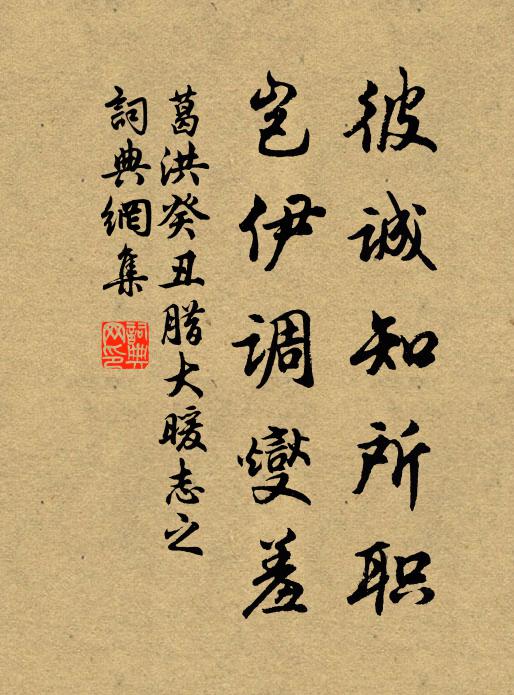 彼诚知所职
岂伊调燮羞
葛洪癸丑腊大暖志之
詞典網集
詞典网印